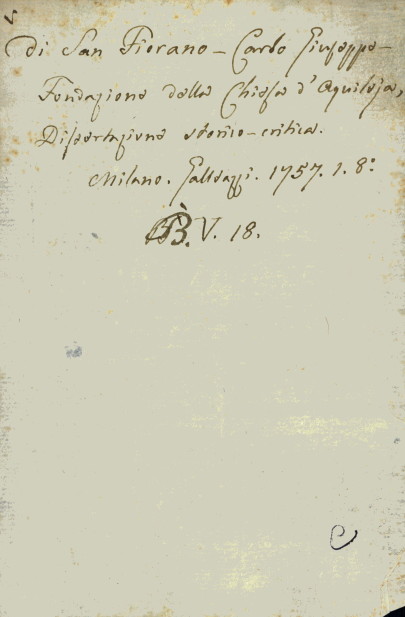 Di San Fiorano - Carlo Giuseppe -
Fondazione della Chiesa d'Aquileja,
Dissertazione storico-critica.
Milano. Galeazzi. 1757. 1. 8.º
B. V. 18.